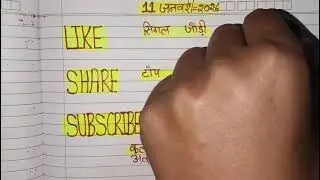 11 जनवरी=2026
LIKE
सिंगल जोड़ी
SHARE
टॉप
SUBSCRIBE